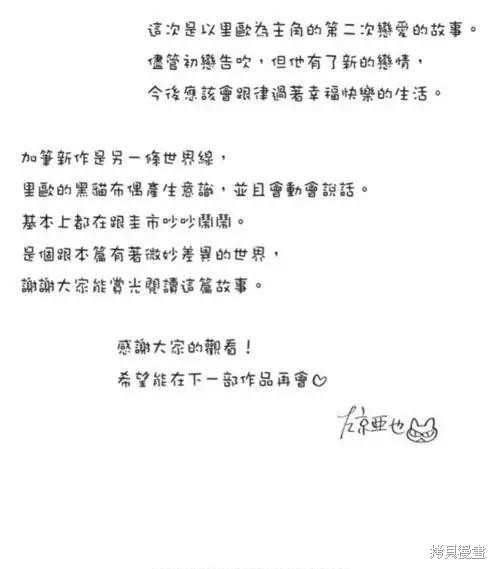 這次是以里歐為主角的第二次戀愛的故事。
儘管初戀告吹，但他有了新的戀情，
今後應該會跟律過著幸福快樂的生活。
加筆新作是另一條世界線，
里歐的黑貓布偶產生意識，並且會動會說話。
基本上都在跟圭市吵吵鬧鬧。
是個跟本篇有著微妙差異的世界，
謝謝大家能賞光閱讀這篇故事。
感謝大家的觀看！
希望能在下一部作品再會♡
左京亜也
拷貝漫畫